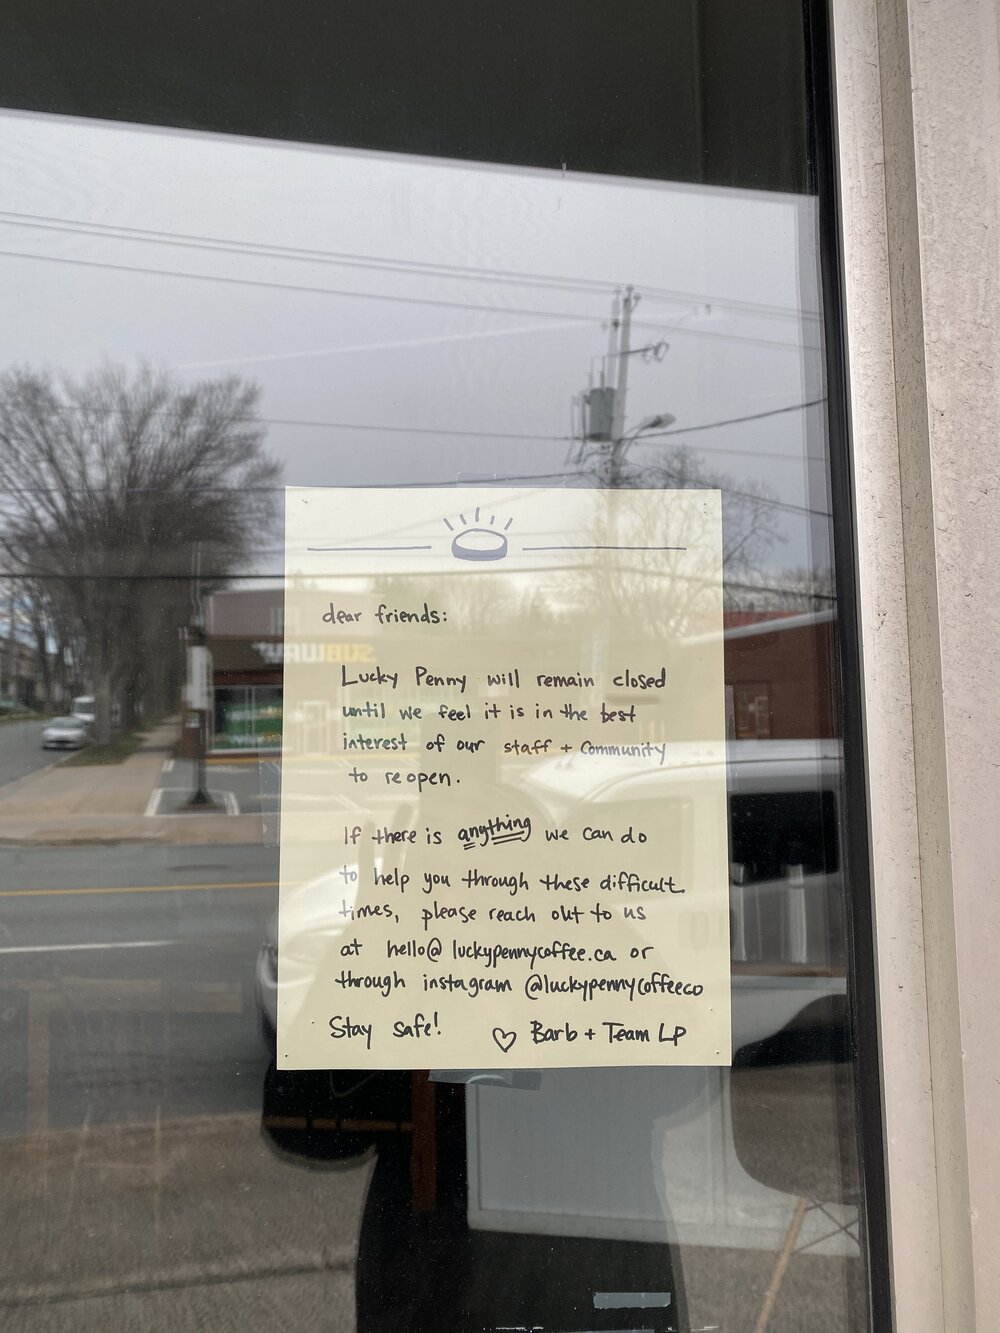 SUBWAY
dear friends:
Lucky Penny will remain closed
until we feel it is in the best
interest of our staff + Community
to reopen.
If there is anything we can do
to help you through these difficult
times, please reach out to us
at hello@luckypennycoffee.ca or
through instagram @luckypennycoffeeco
Stay safe! ♡ Barb + Team LP